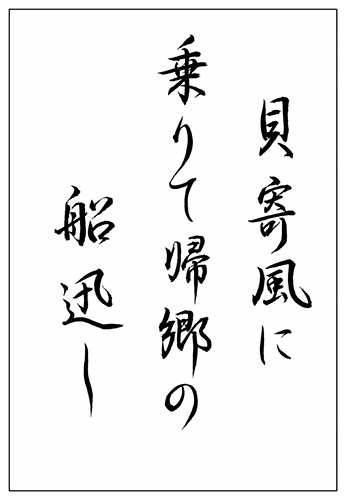 貝寄風に
乗りて帰郷の
船迅し